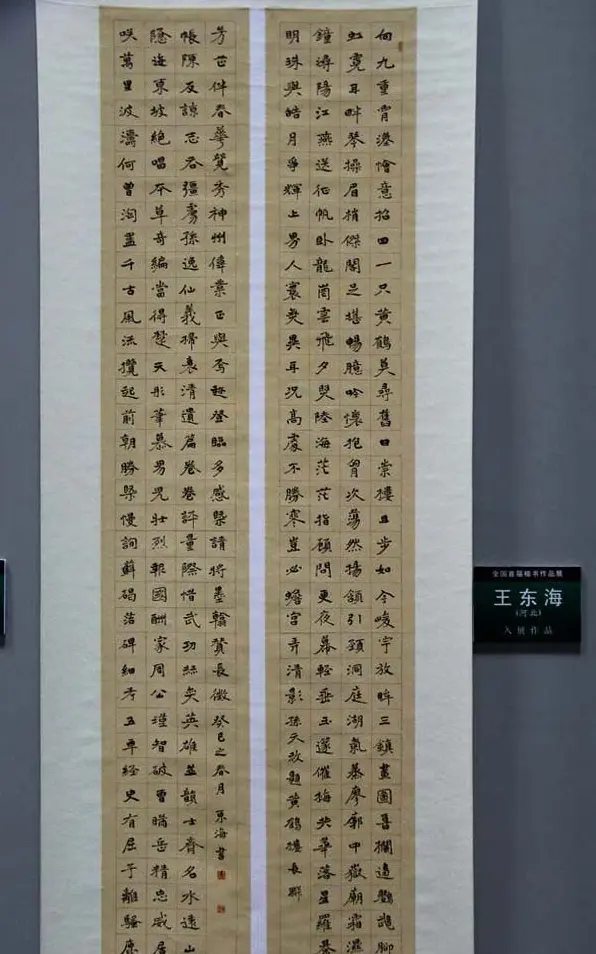 向九重霄意招四一只黃鶴莫尋舊日崇樓且步如今峻宇放眸三鎮畫圖喜攔邊鸚鵡腳
虹霓耳畔琴操眉梢傑閣足堪暢臆吟懷抱胷次蕩然揚頷引頸洞庭湖氣廖廓中嶽廟霜濕
鐘潯陽江燕送征帆卧龍崗雲飛夕熨陸海茫茫指顧間更夜幕輕垂玉邃催梅華落星羅碁
明珠與皓月爭輝上界人寰異耳況高處不勝寒豈必蟾宮弄清影孫天放題黃鶴樓長聯
芳芷伴春華覽秀神州偉業正與登臨多感槩請將墨翰贊長微癸巳之春月 東海書
帳陳友諒忘吞彊虜孫逸仙義掃衰清遺篇卷卷評量際惜武功矣英雄並韻士齊名水遠山
隱迹東坡絕唱本草奇編當得楚天彤筆慕男兒壯烈報國酬家周公瑾智破曹瞞岳精忠威居
咲萬里波濤何曾淘盡千古風流攬起前朝勝槩慢詢蘚碣苔碑細考五車經史有屈子離騷
全国首届楷书作品展
王东海
(河北)
入展作品